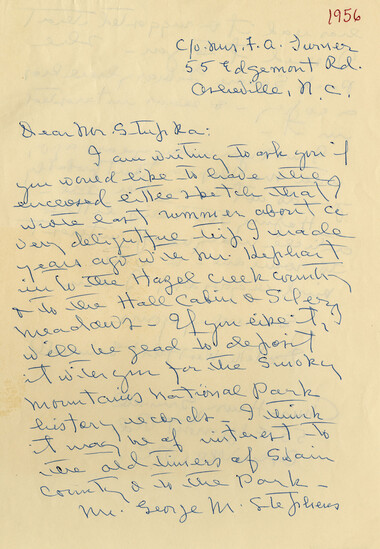 1956
C/o. Mrs. F. A. Turner
55 Edgemont Rd.
Asheville, N. C.
Dear Mr Stupka:
I am writing to ask you if
you would like to have the
enclosed little sketch that I
wrote last summer about a
very delightful trip I made
years ago with Mr. Kephart
in to the Hazel Creek country
& to the Hall Cabin & Silery
meadows – If you like it, I
will be glad to deposit
it with you for the Smoky
Mountains National Park
history records – I think
it may be of interest to
the old timers of Swain
County & to the Park –
Mr. George M. Stephens